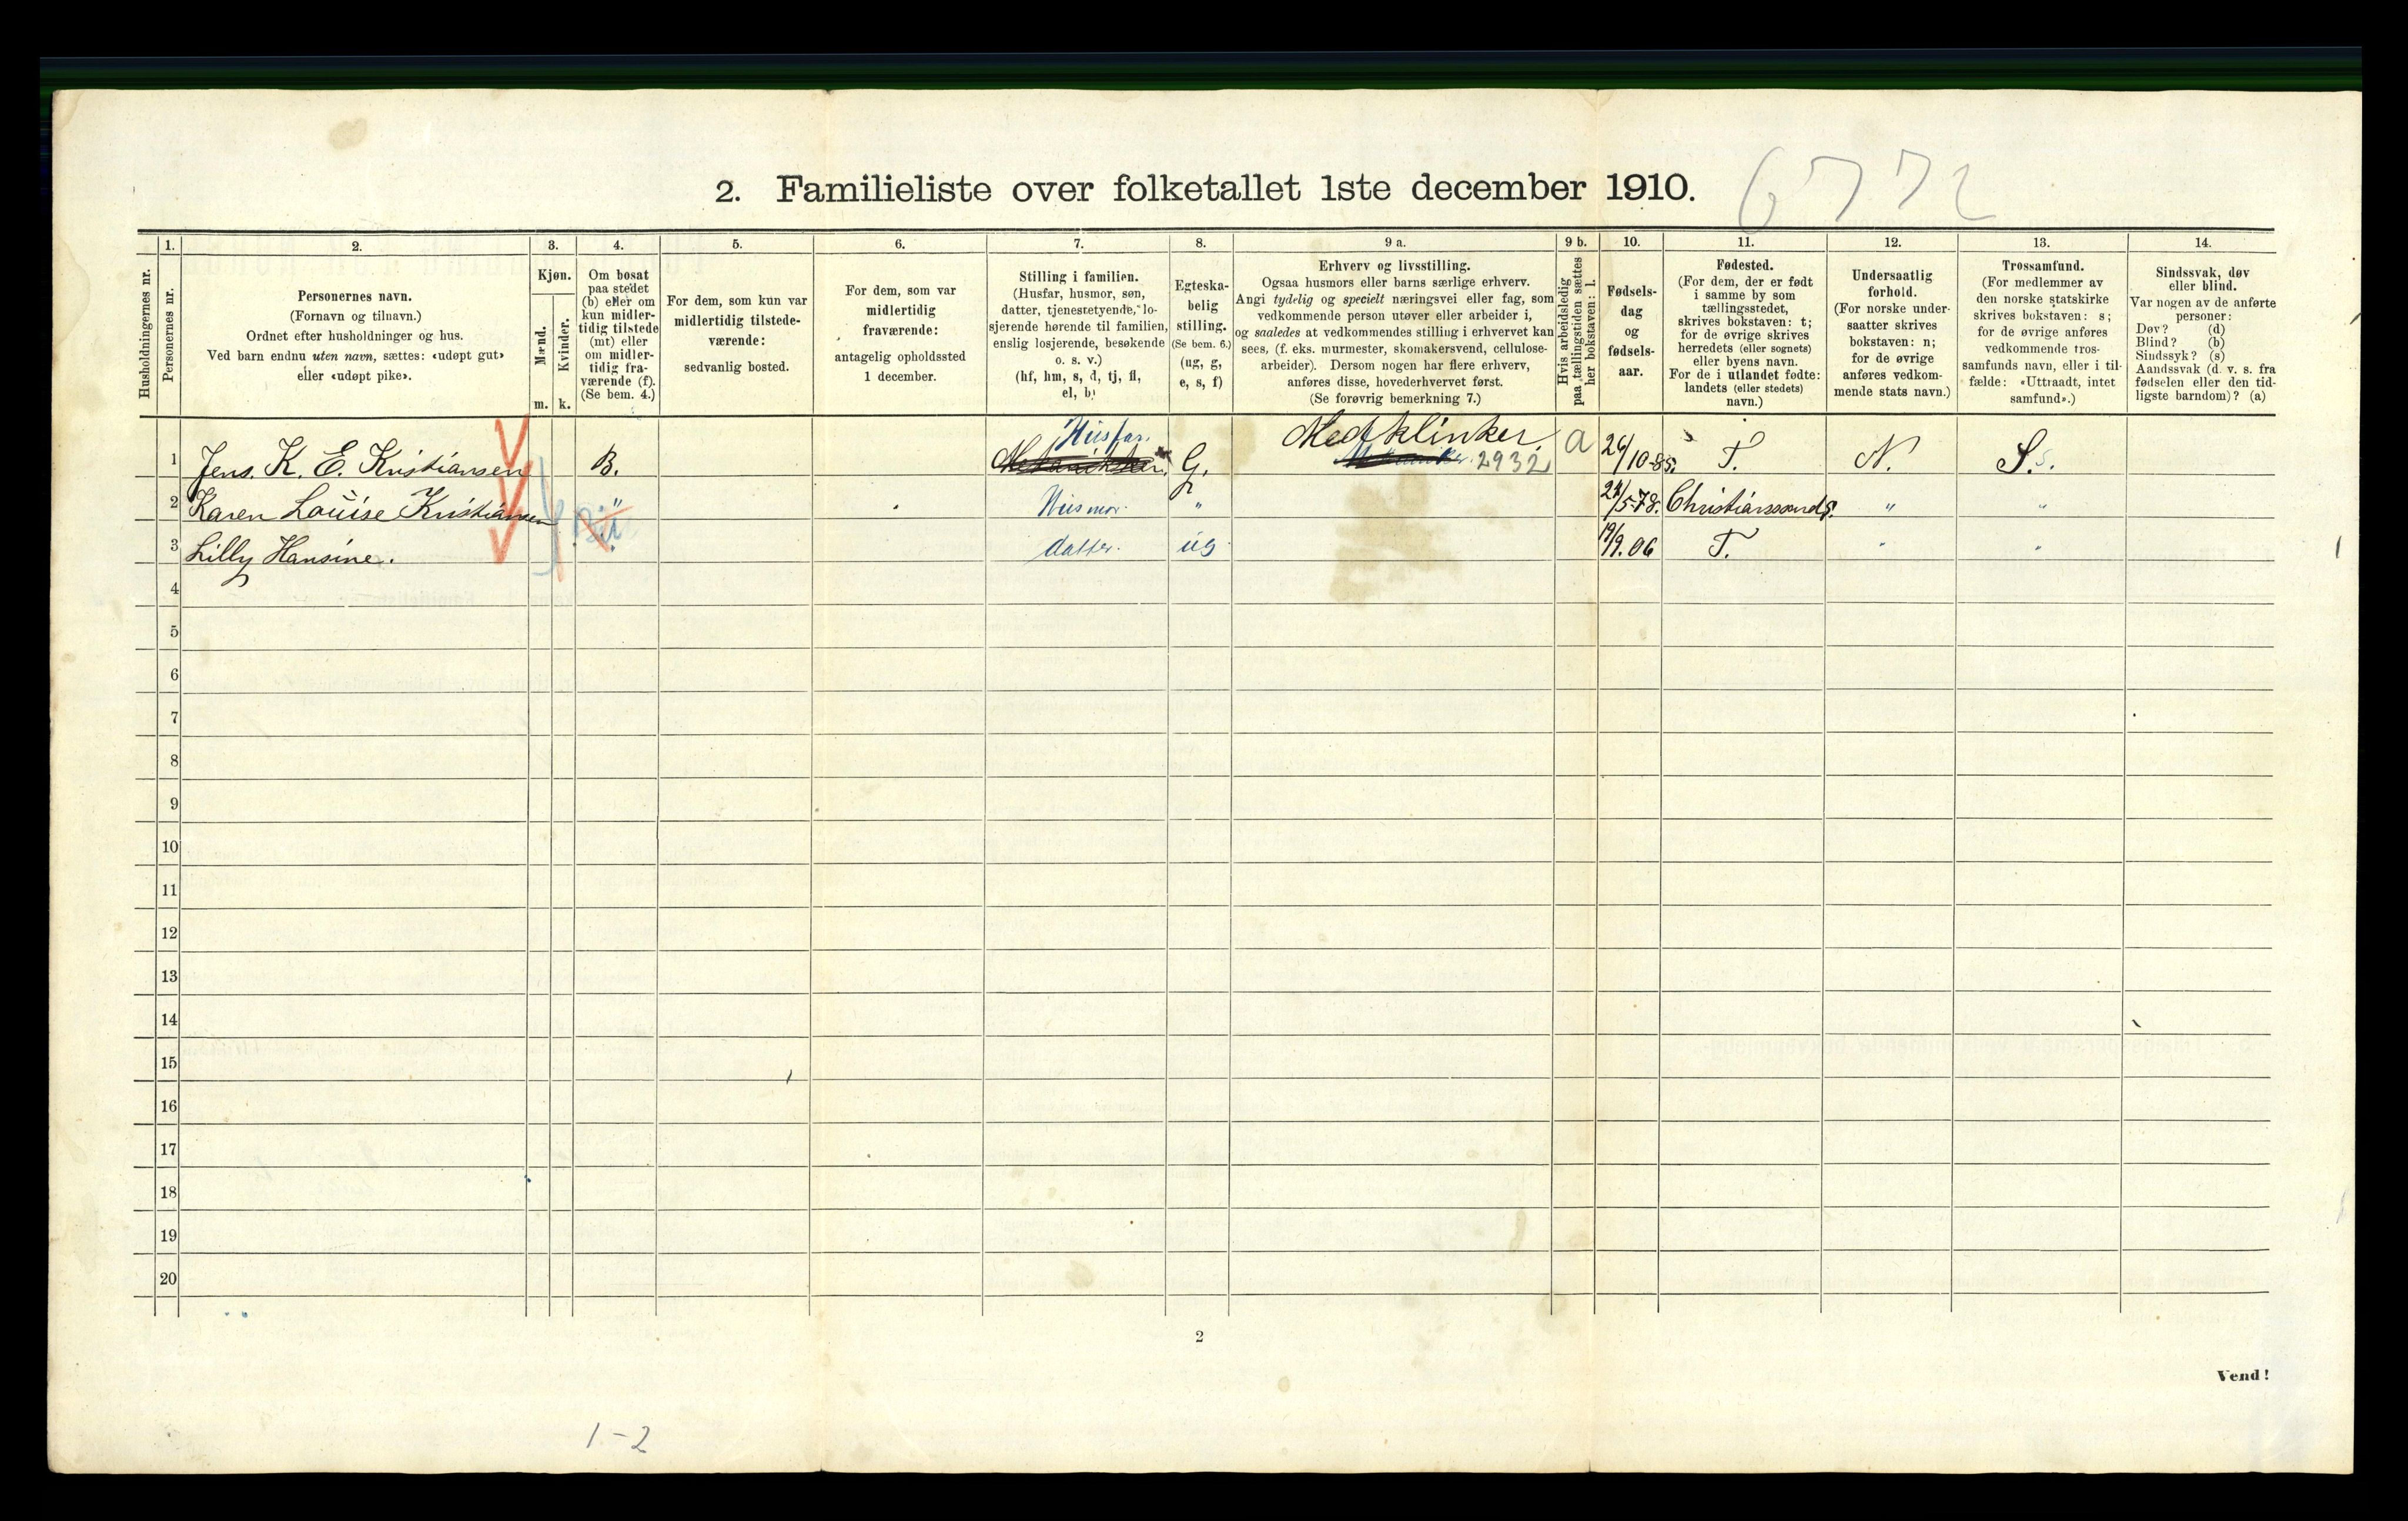 6772
2. Familieliste over folketallet 1ste december 1910.
Husholdningernes nr.
1. Personernes nr.
2. Personernes navn.
(Fornavn og tilnavn.)
Ordnet efter husholdninger og hus.
Ved barn endnu uten navn, sættes: «udøpt gut»
eller «udøpt pike».
3. Kjøn.
Mænd. m.
Kvinder. k.
4. Om bosat
paa stedet
(b) eller om
kun midler-
tidig tilstede
(mt) eller
om midler-
tidig fra-
værende (f).
(Se bem. 4.)
5. For dem, som kun var
midlertidig tilstede-
værende:
sedvanlig bosted.
6. For dem, som var
midlertidig
fraværende:
antagelig opholdssted
1 december.
7. Stilling i familien.
(Husfar, husmor, søn,
datter, tjenestetyende, lo-
sjerende hørende til familien,
enslig losjerende, besøkende
o. s. v.)
(hf, hm, s, d, tj, fl,
el, b)
8. Egteska-
belig
stilling.
(Se bem. 6.)
(ug, g,
e, s, f)
9 a. Erhverv og livsstilling.
Ogsaa husmors eller barns særlige erhverv.
Angi tydelig og specielt næringsvei eller fag, som
vedkommende person utøver eller arbeider i,
og saaledes at vedkommendes stilling i erhvervet kan
sees, (f. eks. murmester, skomakersvend, cellulose-
arbeider). Dersom nogen har flere erhverv,
anføres disse, hovederhvervet først.
(Se forøvrig bemerkning 7.)
9 b. Hvis arbeidsledig
paa tællingstiden sættes
her bokstaven: l.
10. Fødsels-
dag
og
fødsels-
aar.
11. Fødested.
(For dem, der er født
i samme by som
tællingsstedet,
skrives bokstaven: t;
for de øvrige skrives
herredets (eller sognets)
eller byens navn.
For de i utlandet fødte:
landets (eller stedets)
navn.)
12. Undersaatlig
forhold.
(For norske under-
saatter skrives
bokstaven: n;
for de øvrige
anføres vedkom-
mende stats navn.)
13. Trossamfund.
(For medlemmer av
den norske statskirke
skrives bokstaven: s;
for de øvrige anføres
vedkommende tros-
samfunds navn, eller i til-
fælde: «Uttraadt, intet
samfund».)
14. Sindssvak, døv
eller blind.
Var nogen av de anførte
personer:
Døv? (d)
Blind? (b)
Sindssyk? (s)
Aandssvak (d. v. s. fra
fødselen eller den tid-
ligste barndom)? (a)
1 Jens. K. E. Kristiansen B. Husfar. G. Medklinker. 2932 a 26/10-85. T. N. S. s.
2 Karen Louise Kristiansen " Husmor. " 24/5-78. Christianssands. " "
3 Lilly Hansine. datter. ug 19/9.06 T. " "
4
5
6
7
8
9
10
11
12
13
14
15
16
17
18
19
20
2
Vend!
1-2